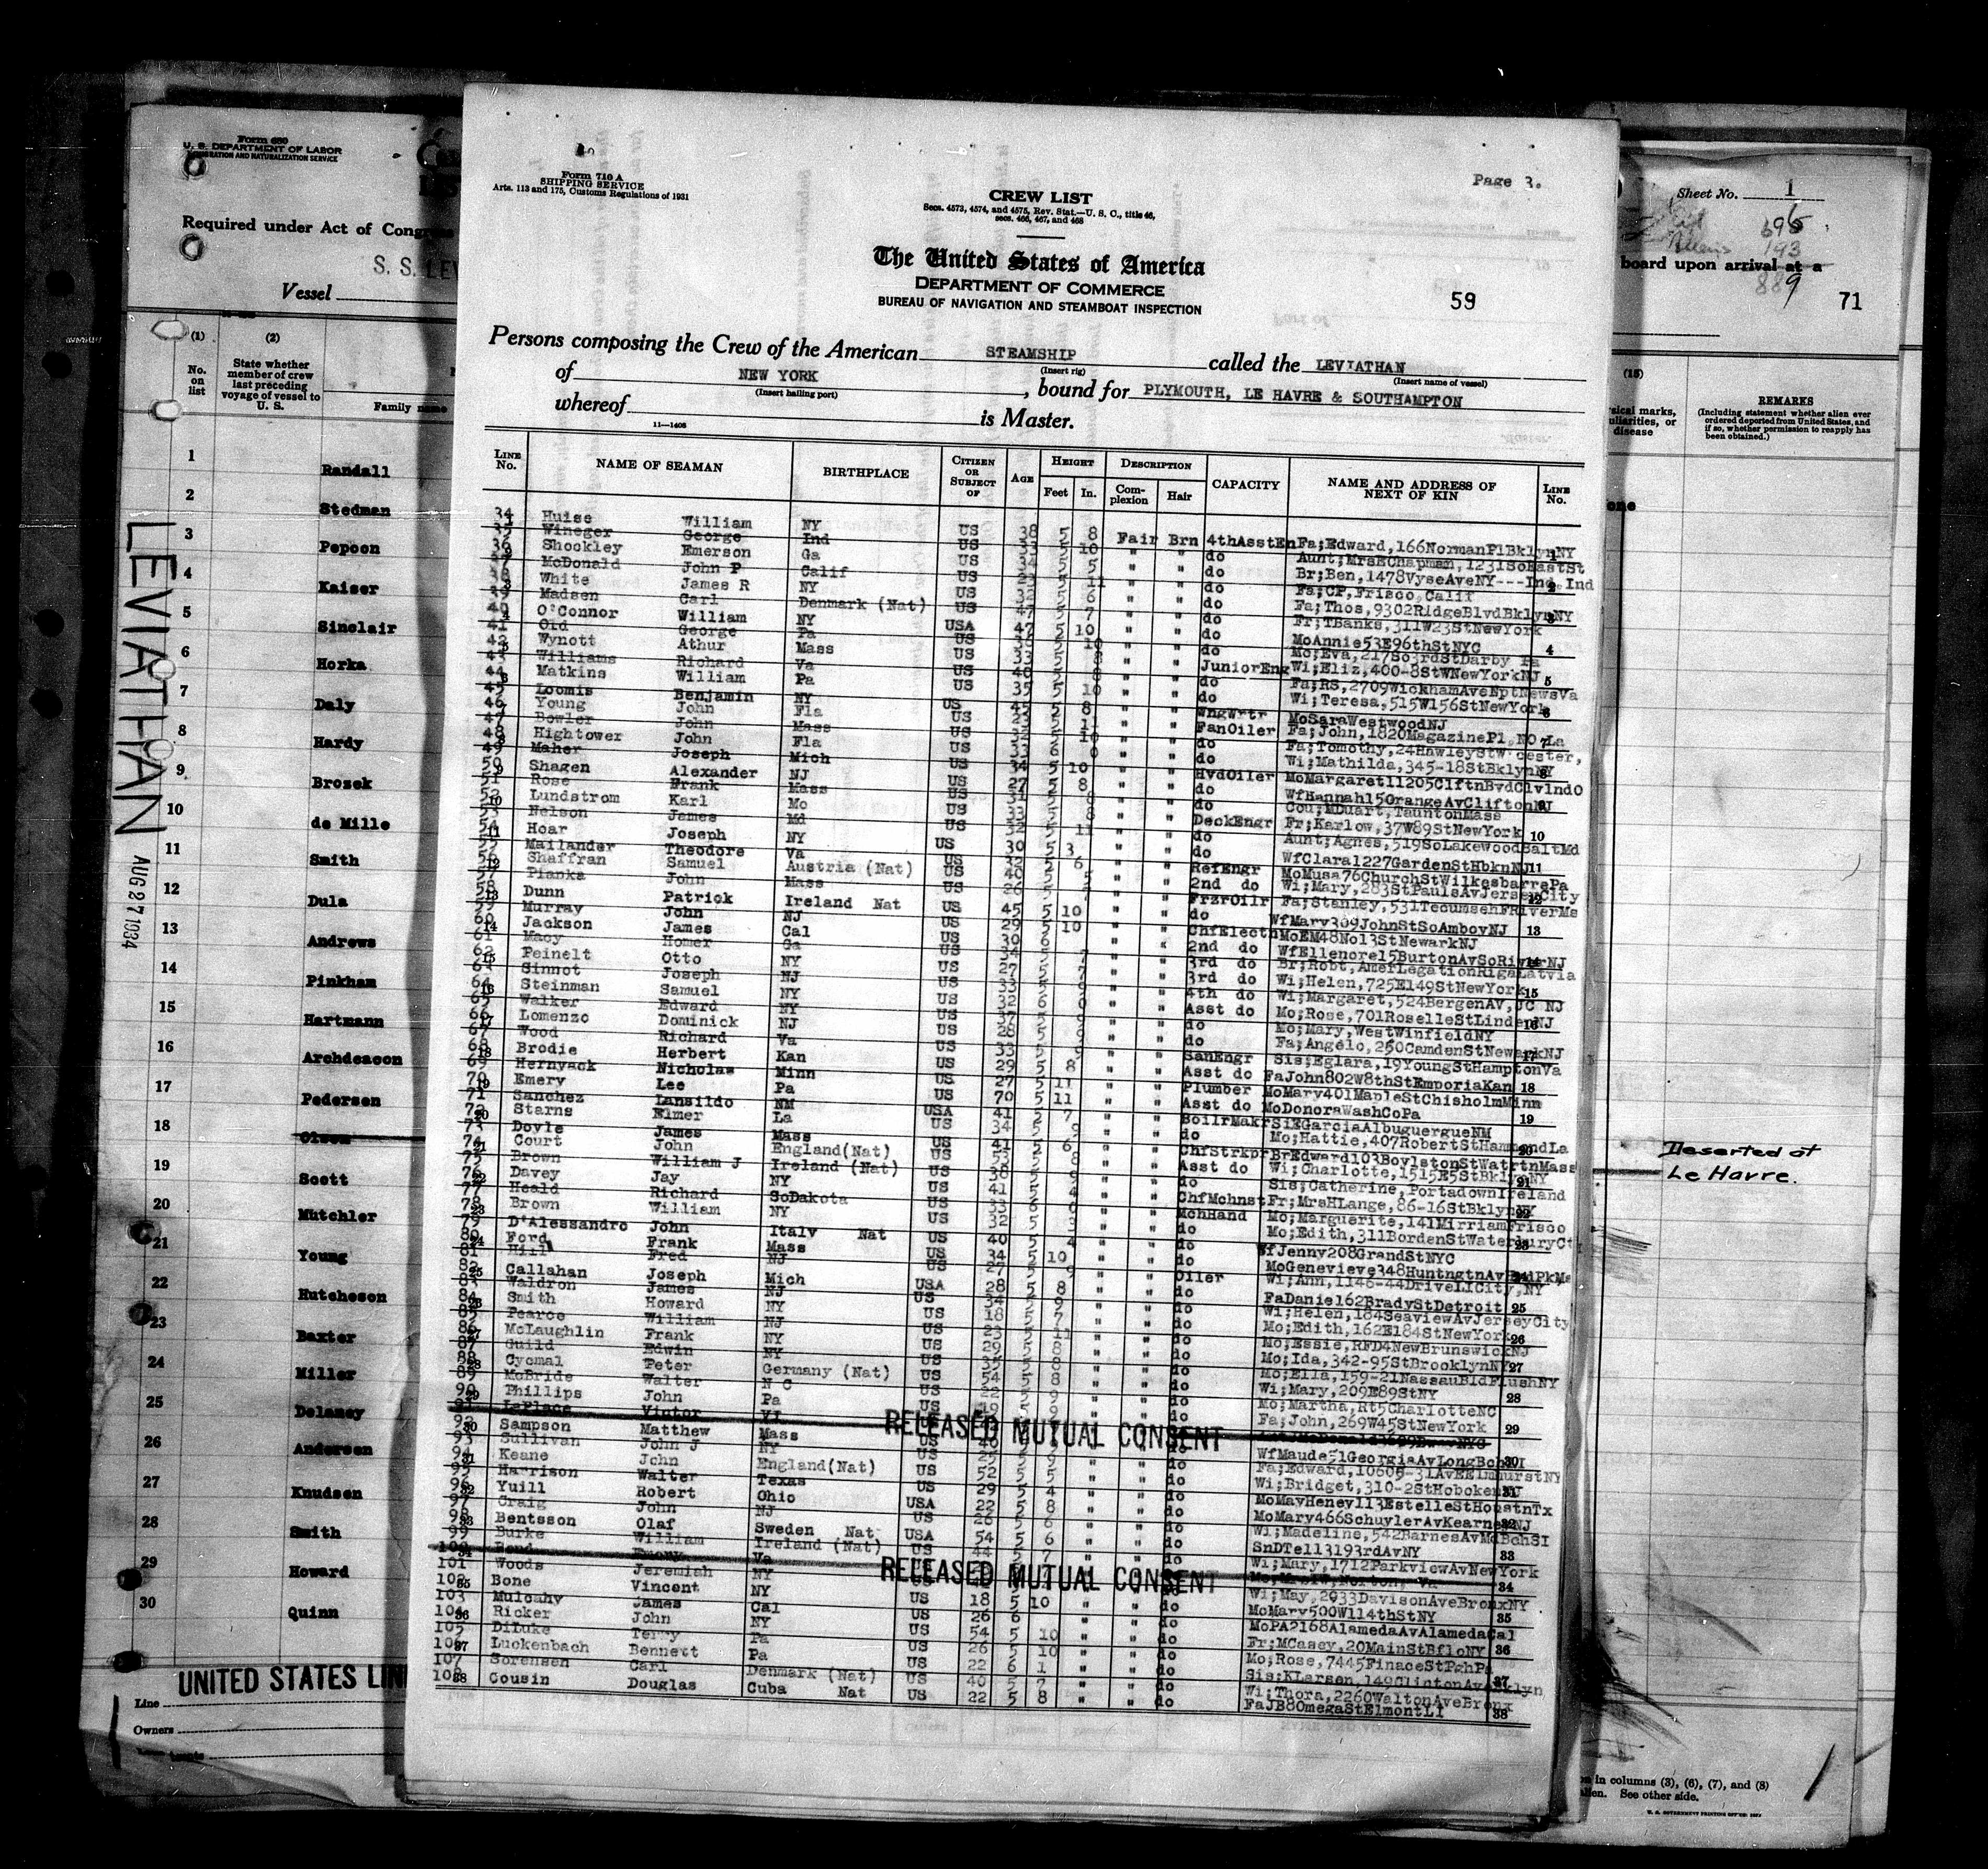 Form 680
U. S. DEPARTMENT OF LABOR
IMMIGRATION AND NATURALIZATION SERVICE
Required under Act of Congre
S. S. LEV
Vessel
(1) (2)
No. on list
State whether member of crew last preceding voyage of vessel to U. S.
Family name
1 Randall
2 Stedman
3 Pepoon
4 Kaiser
5 Sinclair
6 Horka
7 Daly
8 Hardy
9 Brosek
10 de Mille
11 Smith
12 Dula
13 Andrews
14 Pinkham
15 Hartmann
16 Archdeacon
17 Pedersen
18 Olsen
19 Scott
20 Mutchler
21 Young
22 Hutcheson
23 Baxter
24 Miller
25 Delaney
26 Andersen
27 Knudsen
28 Smith
29 Howard
30 Quinn
UNITED STATES LIN
Line
Owners
LEVIATHAN
AUG 27 1934
Form 710 A
SHIPPING SERVICE
Arts. 113 and 175, Customs Regulations of 1931
Page 3.
CREW LIST
Secs. 4573, 4574, and 4575, Rev. Stat.—U. S. C., title 46,
secs. 466, 467, and 468
The United States of America
DEPARTMENT OF COMMERCE
BUREAU OF NAVIGATION AND STEAMBOAT INSPECTION
59
Persons composing the Crew of the American STEAMSHIP called the LEVIATHAN
(Insert rig) (Insert name of vessel)
of NEW YORK, bound for PLYMOUTH, LE HAVRE & SOUTHAMPTON
(Insert hailing port)
whereof is Master.
11—1408
LINE No. NAME OF SEAMAN BIRTHPLACE CITIZEN OR SUBJECT OF AGE HEIGHT Feet In. DESCRIPTION Complexion Hair CAPACITY NAME AND ADDRESS OF NEXT OF KIN LINE No.
34 Huise William NY US 38 5 8 Fair Brn 4thAsstEn Fa;Edward,166NormanPlBklynNY
35 Wineger George Ind US 33 5 10 " " do Aunt;MrsEChapman,1231SoEastSt
36 Shockley Emerson Ga US 34 5 5 " " do Br;Ben,1478VyseAveNY---Ind,Ind
37 McDonald John P Calif US 23 5 11 " " do Fa;CP,Frisco,Calif
38 White James R NY US 32 5 6 " " do Fa;Thos,9302RidgeBlvdBklynNY
39 Madsen Carl Denmark (Nat) US 47 5 7 " " do Fr;TBanks,311W23StNewYork
40 O'Connor William NY USA 47 5 10 " " do MoAnnie53E96thStNYC
41 Old George Pa US 5 10 " " do Mo;Eva,217So3rdStDarby Pa
42 Wynott Athur Mass US 33 5 " " JuniorEng Wi;Eliz,400-8StWNewYorkNJ
43 Williams Richard Va US 40 5 " " do Fa;RS,2709WickhamAveNptNewsVa
44 Matkins William Pa US 35 5 10 " " do Wi;Teresa,515W156StNewYork
45 Loomis Benjamin NY US 45 5 8 " " WngWrtr MoSaraWestwoodNJ
46 Young John Fla US 23 5 11 " " FanOiler Fa;John,1820MagazinePl,NO La
47 Bowler John Mass US 32 5 10 " " do Fa;Tomothy,24HawleyStW cester,
48 Hightower John Fla US 33 6 0 " " do Wi;Mathilda,345-18StBklynNY
49 Maher Joseph Mich US 34 5 10 " " HydOiler MoMargaret11205CliftnBvdClvlndO
50 Shagen Alexander NJ US 27 5 8 " " do WfHannah15OrangeAvCliftonNJ
51 Rose Frank Mass US 31 5 " " do Cou;MDuart,TauntonMass
52 Lundstrom Karl Mo US 33 5 8 " " DeckEngr Fr;Karlow,37W89StNewYork
53 Nelson James Md US 32 5 11 " " do Aunt;Agnes,519SoLakewoodBaltMd
54 Hoar Joseph NY US 30 5 3 " " do WfClara1227GardenStHbknNJ
55 Mailander Theodore Va US 32 5 6 " " RefEngr MoMusa76ChurchStWilkesbarrePa
56 Shaffran Samuel Austria (Nat) US 40 5 5 " " 2nd do Wi;Mary,283StPaulsAvJerseyCity
57 Pianka John Mass US 26 5 " " FrzrOilr Fa;Stanley,531TecumsehFRiverMs
58 Dunn Patrick Ireland Nat US 45 5 10 " " do WfMary309JohnStSoAmboyNJ
59 Murray John NJ US 29 5 10 " " ChfElectn MoEM48No13StNewarkNJ
60 Jackson James Cal US 30 6 " " 2nd do WfEllenore15BurtonAvSoRiverNJ
61 Macy Homer Ga US 34 5 7 " " 3rd do Br;Robt,AmerLegationRigaLatvia
62 Peinelt Otto NY US 27 5 7 " " 3rd do Wi;Helen,725E149StNewYork
63 Sinnot Joseph NJ US 33 5 9 " " 4th do Wi;Margaret,524BergenAV,JC NJ
64 Steinman Samuel NY US 32 6 0 " " Asst do Mo;Rose,701RoselleStLindenNJ
65 Walker Edward NY US 37 5 9 " " do Mo;Mary,WestWinfieldNY
66 Lomenzo Dominick NJ US 28 5 " " do Fa;Angelo,250CamdenStNewarkNJ
67 Wood Richard Va US 33 5 9 " " SanEngr Sis;Eglara,19YoungStHamptonVa
68 Brodie Herbert Kan US 29 5 8 " " Asst do FaJohn802W8thStEmporiaKan
69 Hernyack Nicholas Minn US 27 5 11 " " Plumber MoMary401MapleStChisholmMinn
70 Emery Lee Pa US 70 5 11 " " Asst do MoDonoraWashCoPa
71 Sanchez Lansildo NM USA 41 5 7 " " BoilrMakr SiEGarciaAlbuguergueNM
72 Starns Elmer La US 34 5 9 " " do Mo;Hattie,407RobertStHammondLa
73 Doyle James Mass US 41 5 6 " " ChfStrkpr BrEdward103BoylstonStWatrtnMass
74 Court John England(Nat) US 53 5 8 " " Asst do Wi;Charlotte,1515E5StBklynNY
75 Brown William J Ireland (Nat) US 38 5 9 " " do Sis;Catherine,PortadownIreland
76 Davey Jay NY US 41 5 4 " " ChfMchnst Fr;MrsHLange,86-16StBklynNY
77 Heald Richard SoDakota US 33 6 0 " " MchHand Mo;Marguerite,141MirriamFrisco
78 Brown William NY US 32 5 3 " " do Mo;Edith,311BordenStWaterburyCt
79 D'Alessandro John Italy Nat US 40 5 4 " " do WfJenny208GrandStNYC
80 Ford Frank Mass US 34 5 10 " " do MoGenevieve348HuntngtnAvHydPkMs
81 Hill Fred NJ US 27 5 9 " " Oiler Wi;Ann,1146-44DriveLICity,NY
82 Callahan Joseph Mich USA 28 5 8 " " do FaDaniel62BradyStDetroit
83 Waldron James NJ US 34 5 9 " " do Wi;Helen,184SeaviewAvJerseyCity
84 Smith Howard NY US 18 5 7 " " do Mo;Edith,162E184StNewYork
85 Pearce William NJ US 23 5 11 " " do Mo;Essie,RFD4NewBrunswickNJ
86 McLaughlin Frank NY US 29 5 8 " " do Mo;Ida,342-95StBrooklynNY
87 Guild Edwin NY US 35 5 8 " " do Mo;Ella,159-21NassauBldFlushNY
88 Cycmal Peter Germany (Nat) US 54 5 8 " " do Wi;Mary,209E89StNY
89 McBride Walter N C US 22 5 9 " " do Mo;Martha,Rt5CharlotteNC
90 Phillips John Pa US 19 5 9 " " do Fa;John,269W45StNewYork
91 LaPlace Victor VI
RELEASED MUTUAL CONSENT
92 Sampson Matthew Mass US 40 5 " " do WfMaude51GeorgiaAvLongBchLI
93 Sullivan John J NY US 25 5 9 " " do Fa;Edward,10605-31AvEElmhurstNY
94 Keane John England(Nat) US 52 5 5 " " do Wi;Bridget,310-2StHobokenNJ
95 Harrison Walter Texas US 29 5 4 " " do MoMayHeney113EstelleStHoustnTx
96 Yuill Robert Ohio USA 22 5 8 " " do MoMary466SchuylerAvKearneyNJ
97 Craig John NJ US 26 5 6 " " do Wi;Madeline,542BarnesAvMdBchSI
98 Bentsson Olaf Sweden Nat USA 54 5 6 " " do SnDTell3193rdAvNY
99 Burke William Ireland (Nat) US 44 5 7 " " do Wi;Mary,1712ParkviewAvNewYork
100 Bond Emory Va
RELEASED MUTUAL CONSENT
101 Woods Jeremiah NY US " " do Wi;May,2033DavisonAveBronxNY
102 Bone Vincent NY US 18 5 10 " " do MoMary500W114thStNY
103 Mulcahy James Cal US 26 6 " " do MoPA2168AlamedaAvAlamedaCal
104 Ricker John NY US 54 5 10 " " do Fr;MCasey,20MainStBfloNY
105 DiLuke Terry Pa US 26 5 10 " " do Mo;Rose,7445FinaceStPghPa
106 Luckenbach Bennett Pa US 22 6 1 " " do
107 Sorensen Carl Denmark (Nat) US 40 5 7 " " do Wi;Thora,2260WaltonAveBronx
108 Cousin Douglas Cuba Nat US 22 5 8 " " do FaJB80megaStElmontLI
Sis;KLarsen,149ClintonAvBklyn
Sheet No. 1
696
193
889
board upon arrival at a
71
(15)
sical marks, uliarities, or disease
REMARKS
(Including statement whether alien ever ordered deported from United States, and if so, whether permission to reapply has been obtained.)
one
Deserted at
Le Havre.
in columns (3), (6), (7), and (8)
See other side.
U. S. GOVERNMENT PRINTING OFFICE